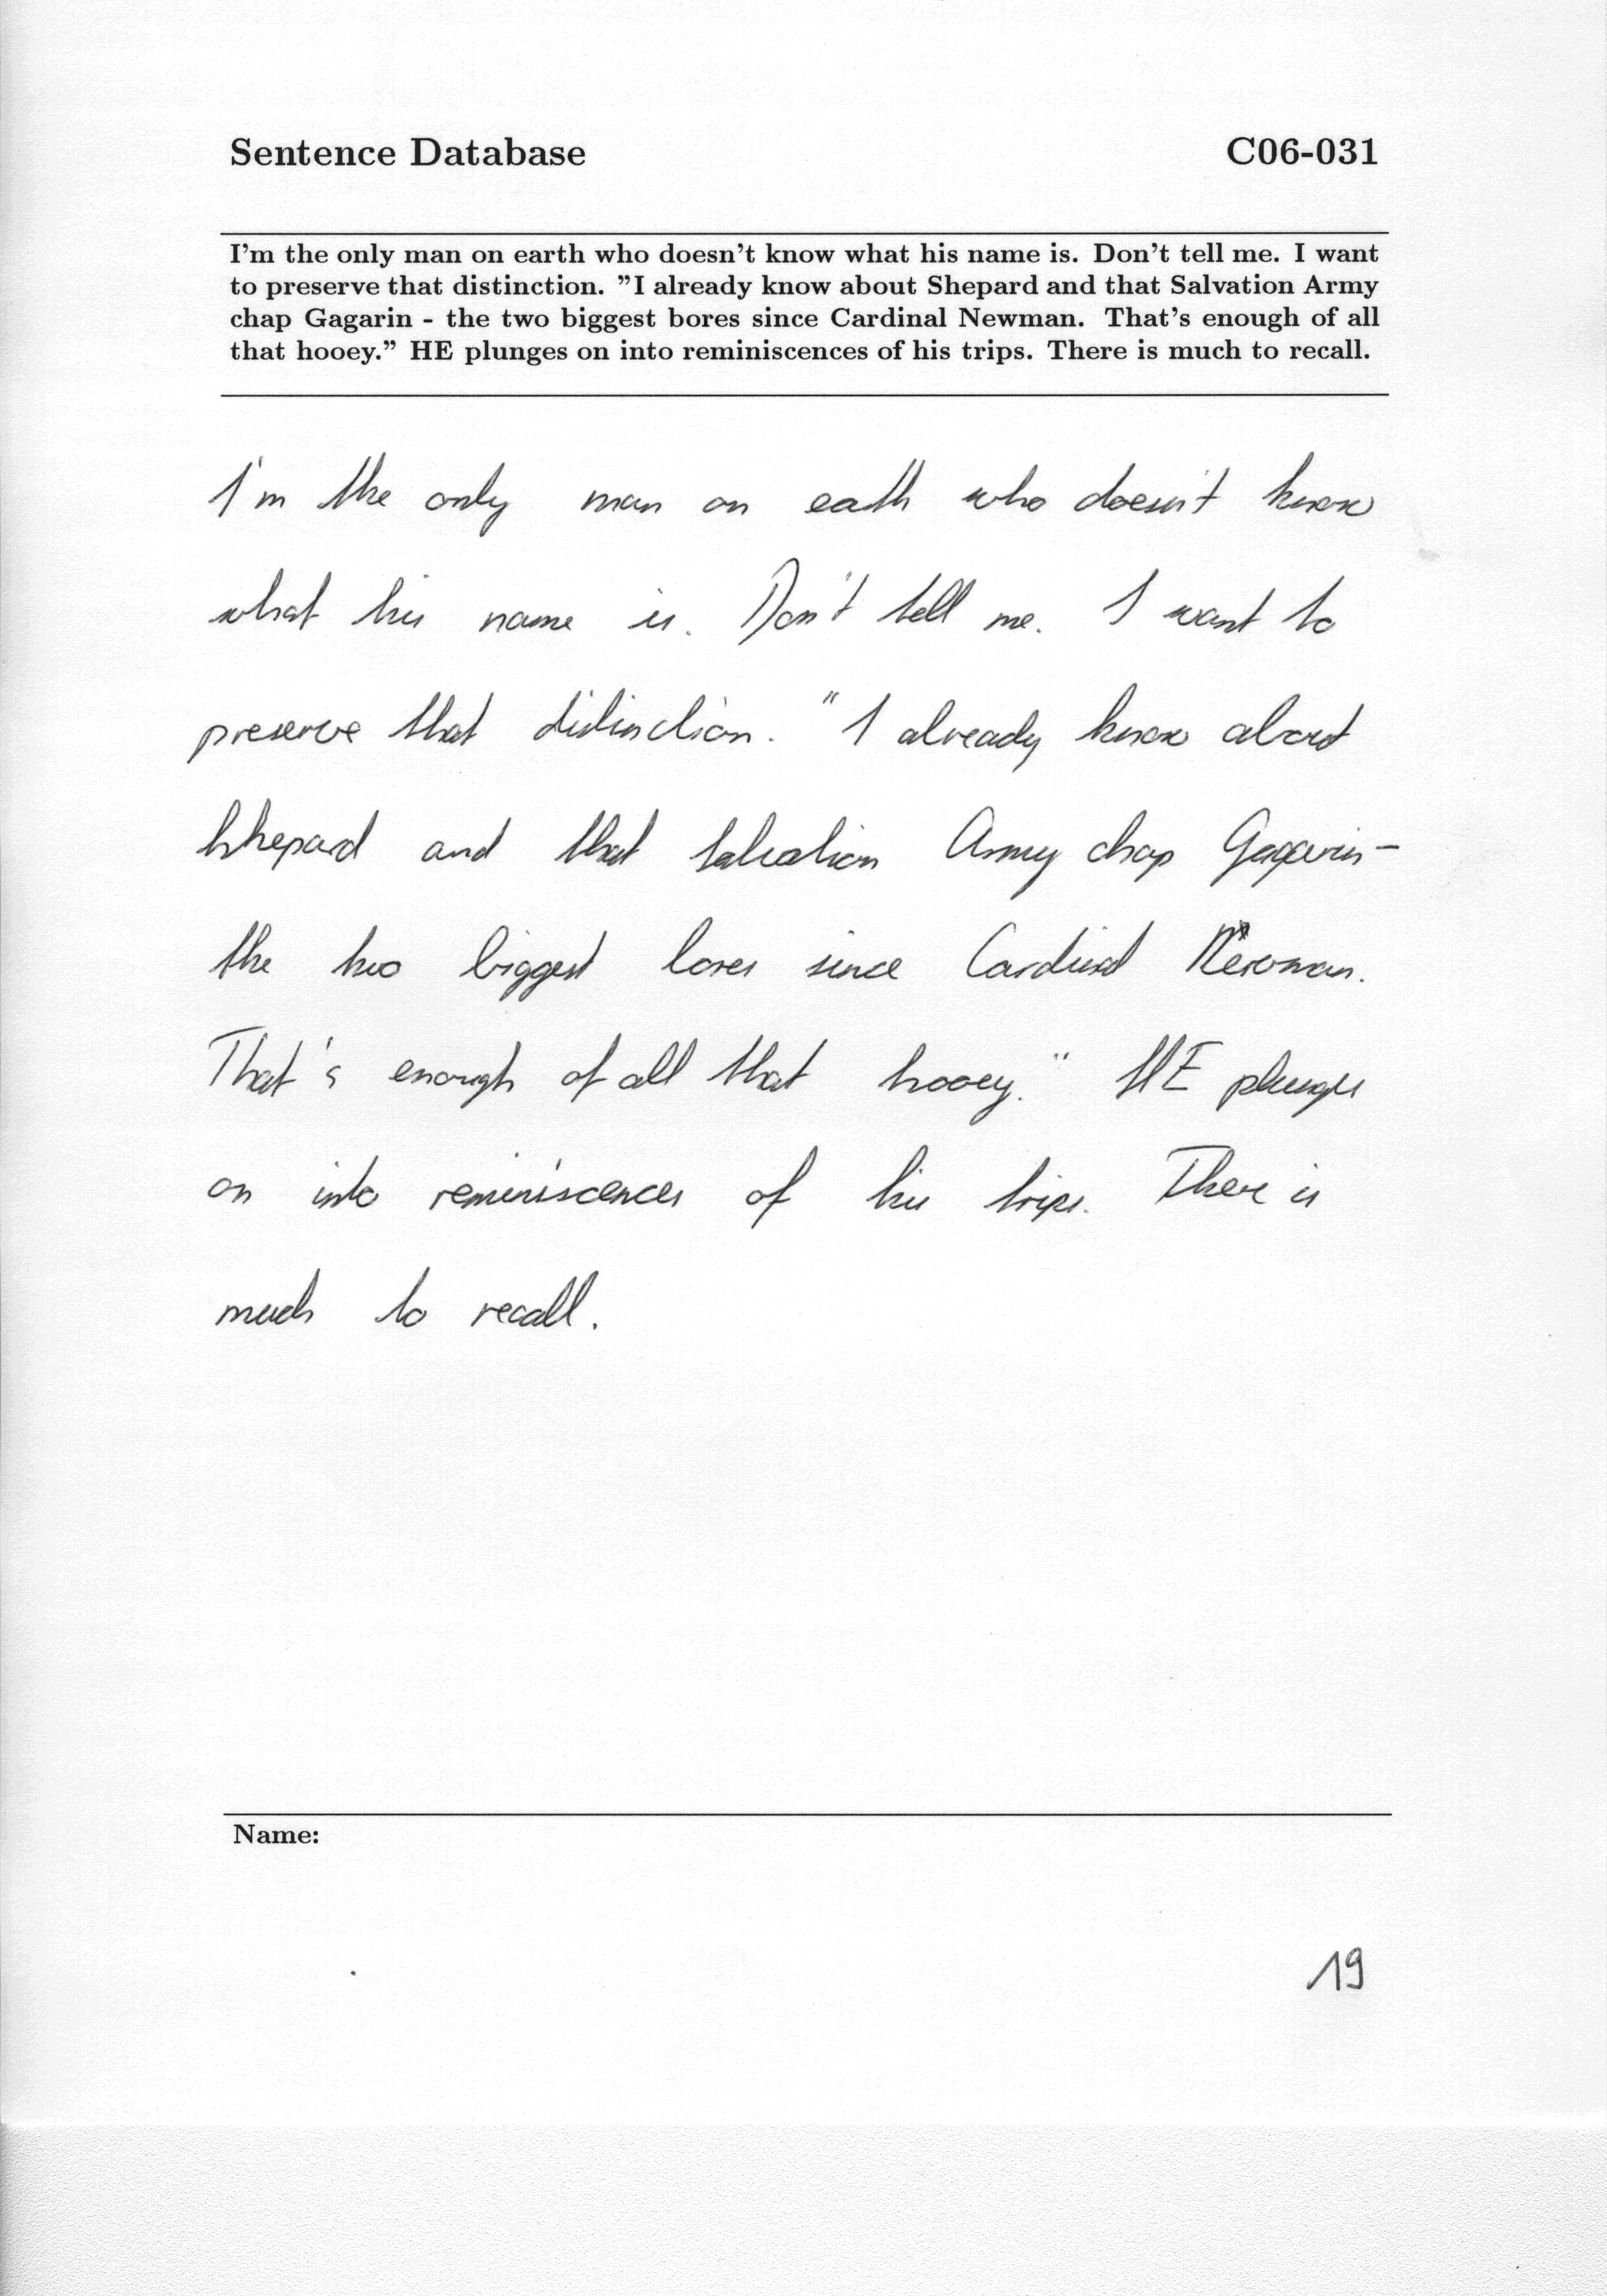 Sentence Database C06-031
I'm the only man on earth who doesn't know what his name is. Don't tell me. I want
to preserve that distinction. "I already know about Shepard and that Salvation Army
chap Gagarin - the two biggest bores since Cardinal Newman. That's enough of all
that hooey." HE plunges on into reminiscences of his trips. There is much to recall.
I'm the only man on earth who doesn't know
what his name is. Don't tell me. I want to
preserve that distinction. "I already know about
Shepard and that Salvation Army chap Gagarin -
the two biggest bores since Cardinal Newman.
That's enough of all that hooey." HE plunges
on into reminiscences of his trips. There is
much to recall.
Name:
19